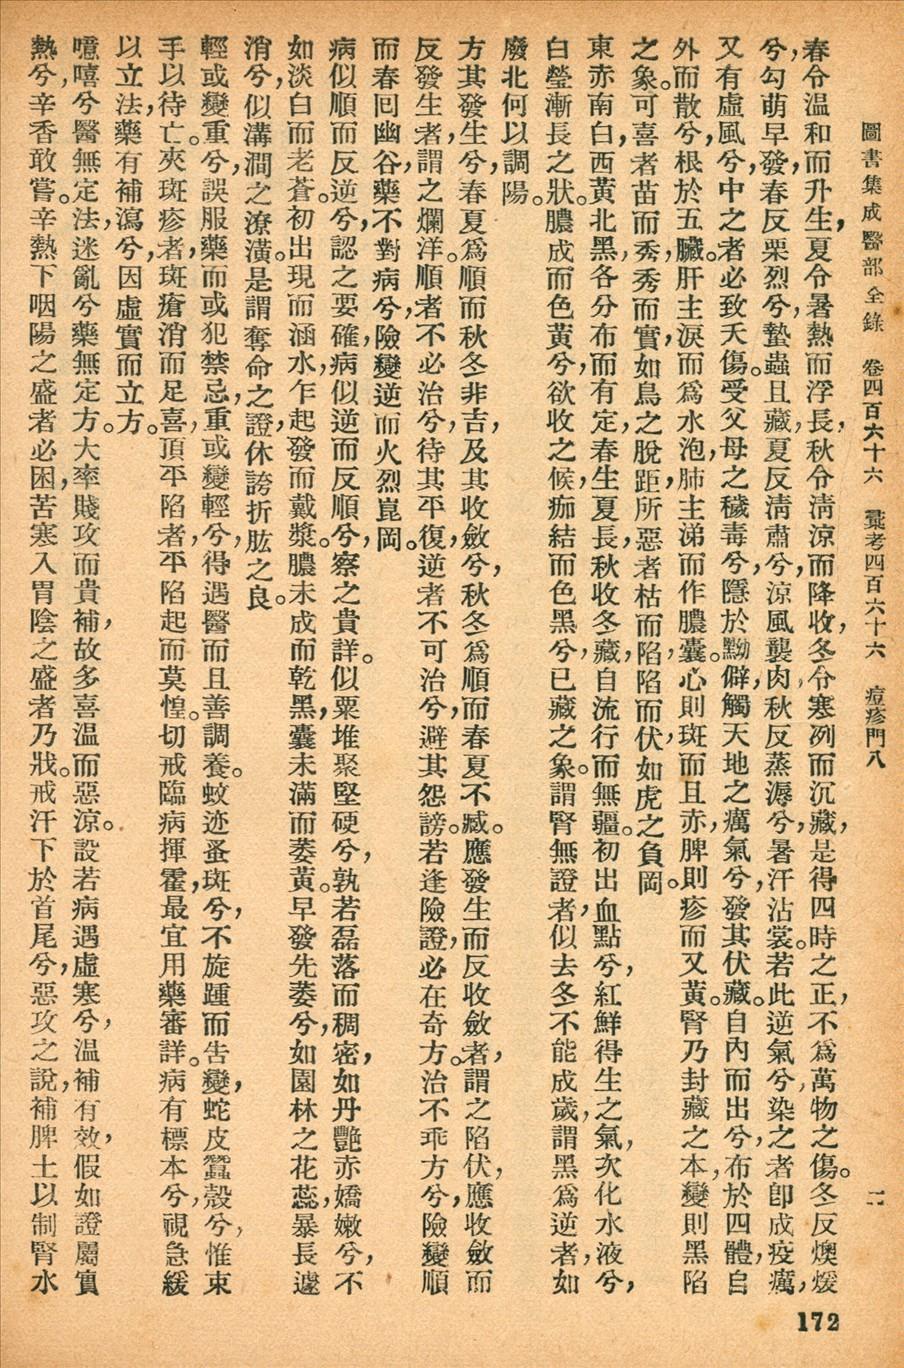 圖書集成醫部全錄　卷四百六十六　彙考四百六十六　痘疹門八　二
春令温和而升生，夏令暑熱而浮長，秋令淸涼而降收，冬令寒冽而沉藏，是得四時之正，不爲萬物之傷。冬反燠煖
兮，勾萌早發，春反栗烈兮，蟄蟲且藏，夏反淸肅兮，涼風襲肉，秋反蒸溽兮，暑汗沾裳。若此逆氣兮，染之者卽成疫癘，
又有虛風兮，中之者必致夭傷。受父母之穢毒兮，隱於黝僻，觸天地之癘氣兮，發其伏藏。自內而出兮，布於四體，自
外而散兮，根於五臟。肝主淚而爲水泡，肺主涕而作膿囊。心則斑而且赤，脾則疹而又黃。腎乃封藏之本，變則黑陷
之象。可喜者苗而秀，秀而實，如鳥之脫距，所惡者枯而陷，陷而伏，如虎之負岡。
東赤南白，西黃北黑，各分布而有定，春生夏長，秋收冬藏，自流行而無疆。初出血點兮，紅鮮得生之氣，次化水液兮，
白瑩漸長之狀。膿成而色黃兮，欲收之候，痂結而色黑兮，已藏之象。謂腎無證者，似去冬不能成歲，謂黑爲逆者，如
廢北何以調陽。
方其發生兮，春夏爲順而秋冬非吉，及其收斂兮，秋冬爲順而春夏不臧。應發生而反收斂者，謂之陷伏，應收斂而
反發生者，謂之爛洋。順者不必治兮，待其平復，逆者不可治兮，避其怨謗。若逢險證，必在奇方。治不乖方兮，險變順
而春回幽谷，藥不對病兮，險變逆而火烈崑岡。
病似順而反逆兮，認之要確，病似逆而反順兮，察之貴詳。似粟堆聚堅硬兮，孰若磊落而稠密，如丹艷赤嬌嫩兮，不
如淡白而老蒼。初出現而涵水，乍起發而戴漿。膿未成而乾黑，囊未滿而萎黃。早發先萎兮，如園林之花蕊，暴長遽
消兮，似溝澗之潦潢。是謂奪命之證，休誇折肱之良。
輕或變重兮，誤服藥而或犯禁忌，重或變輕兮，得遇醫而且善調養。蚊迹蚤斑兮，不旋踵而告變，蛇皮蠶殼兮，惟束
手以待亡。夾斑疹者，斑瘡消而足喜，頂平陷者，平陷起而莫惶。切戒臨病揮霍，最宜用藥審詳。病有標本兮，視急緩
以立法，藥有補瀉兮，因虛實而立方。
噫嘻兮醫無定法，迷亂兮藥無定方。大率賤攻而貴補，故多喜溫而惡涼。設若病遇虛寒兮，溫補有效，假如證屬實
熱兮，辛香敢嘗。辛熱下咽陽之盛者必困，苦寒入胃陰之盛者乃戕。戒汗下於首尾兮，惡攻之說，補脾土以制腎水
172